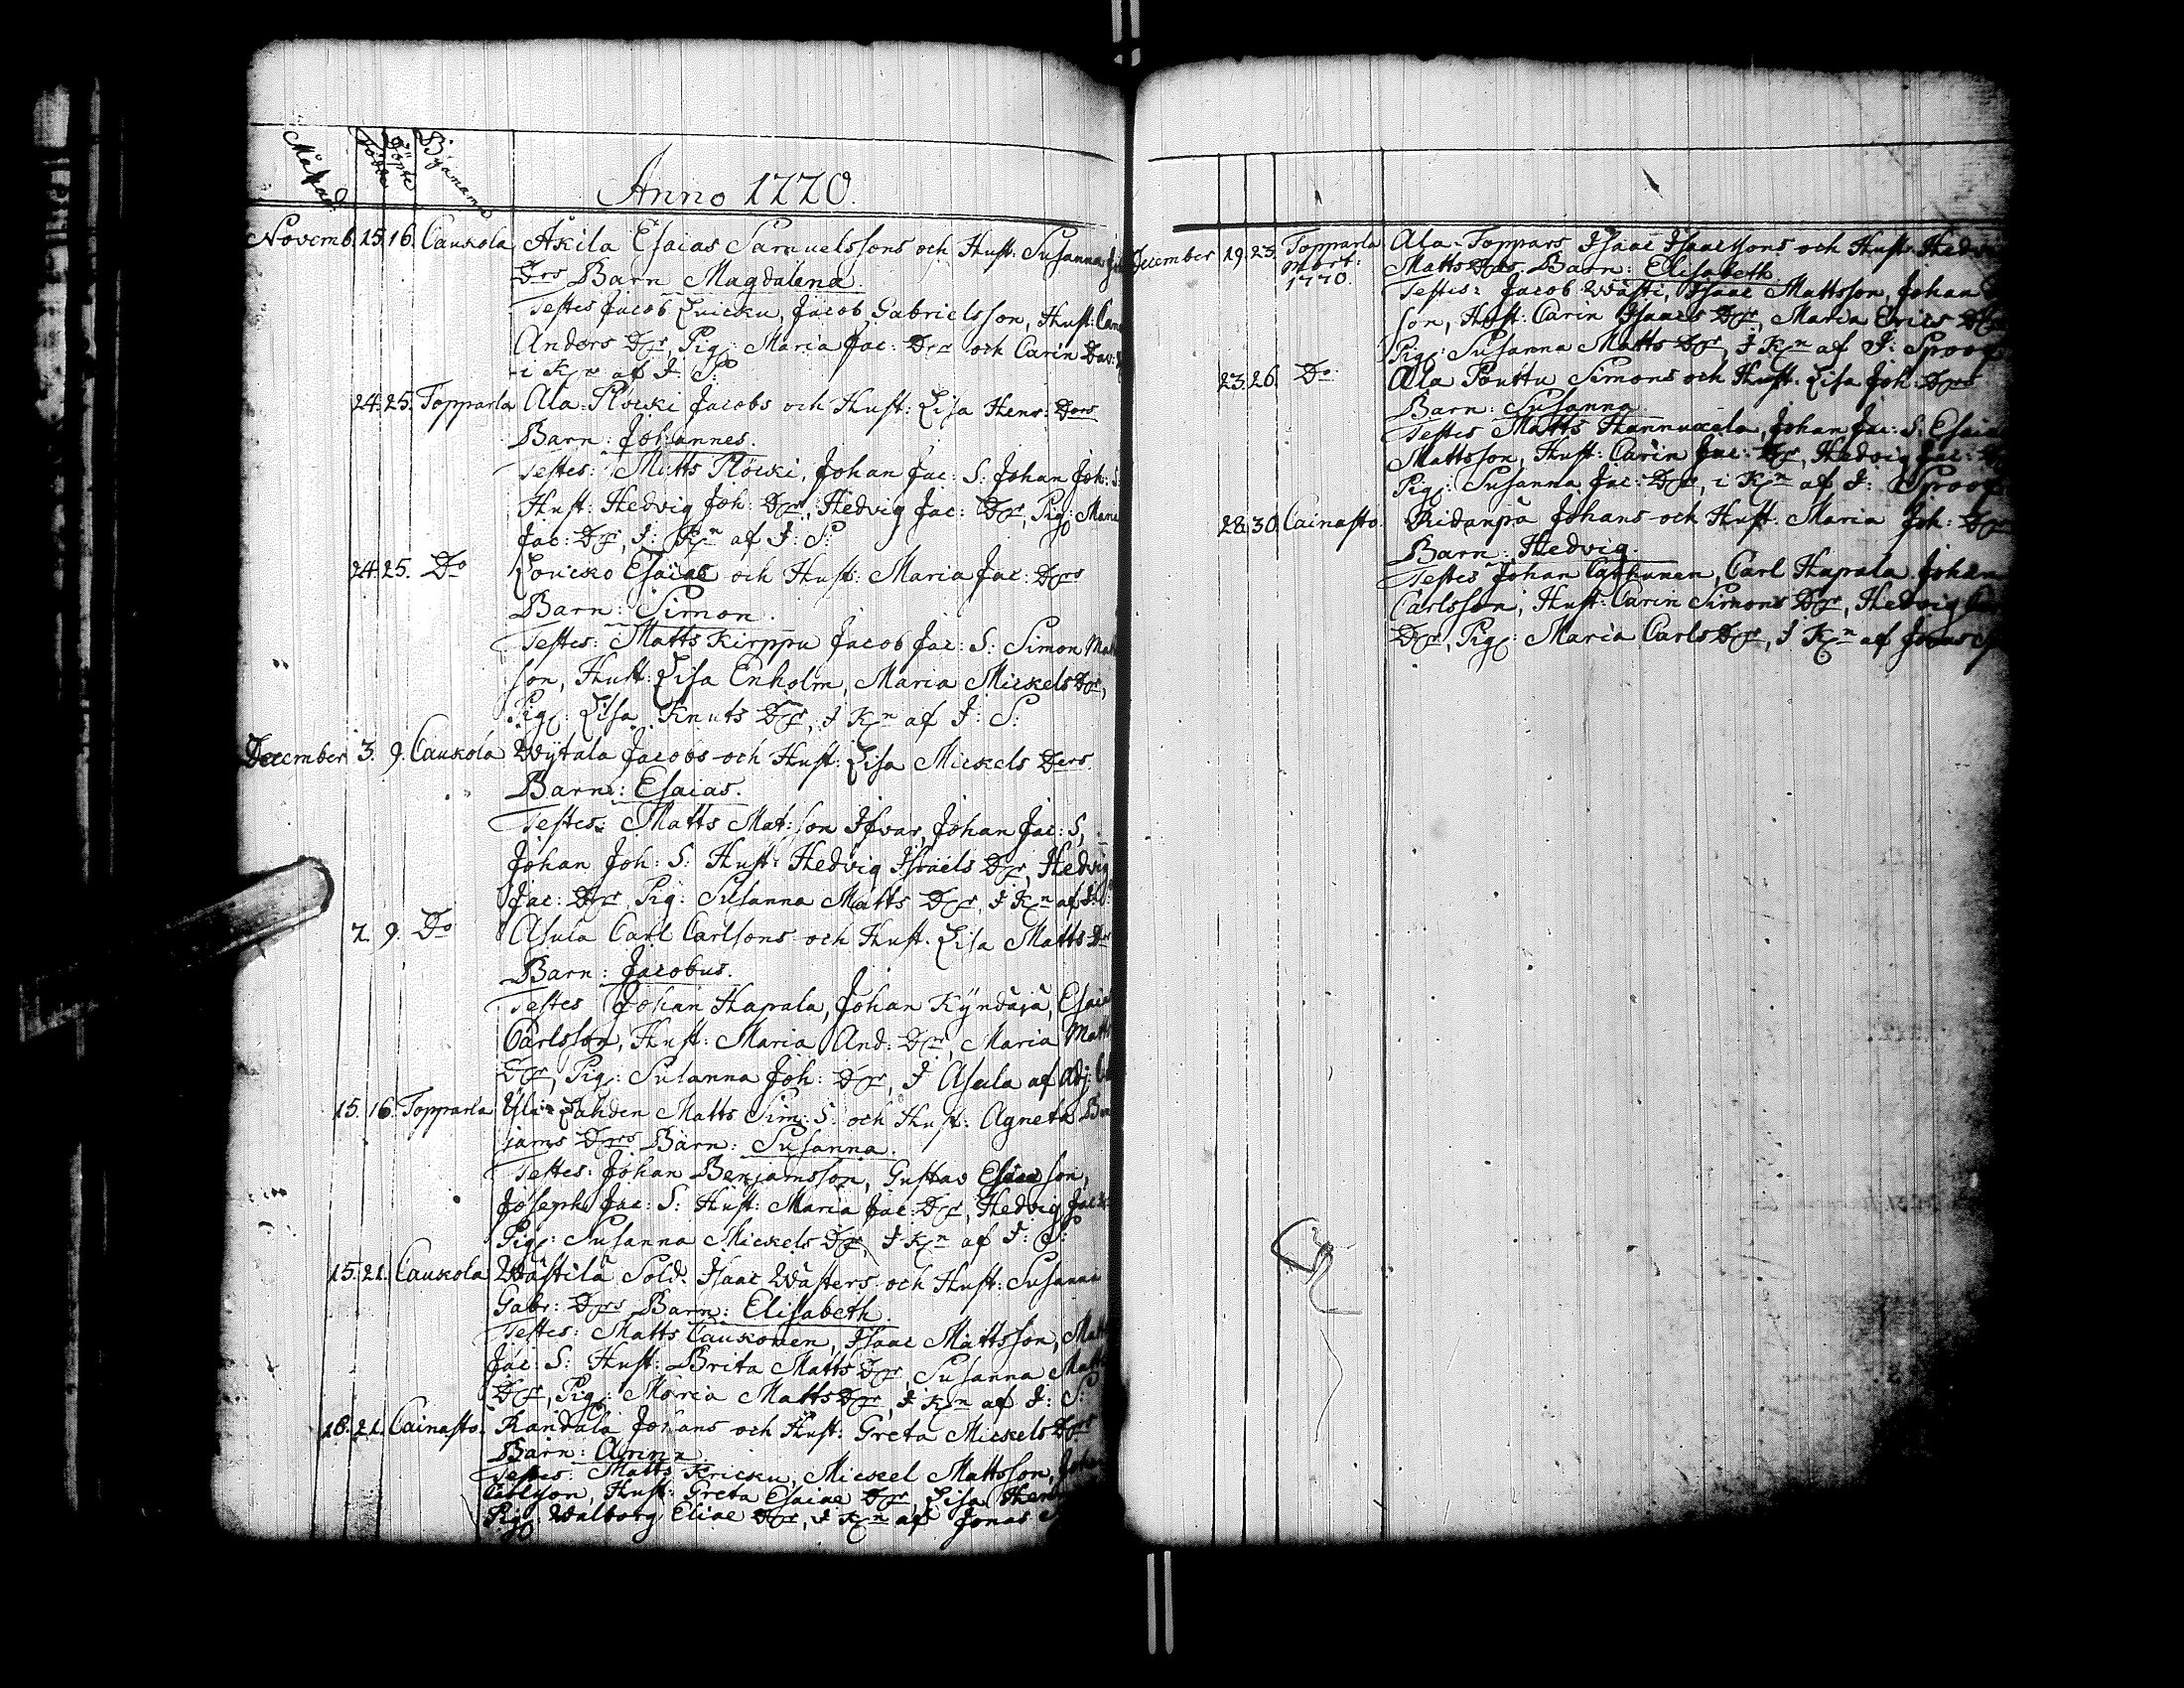 Månad
Födde
Döpte
Byanamn
Anno 1770.
Novemb. 15. 16. Caukola Äkilä Esaias Samuelssons och Hust: Susanna
Drs Barn Magdalena.
Testes Jacob Luicku, Jacob Gabrielsson, Hust:
Anders Dr, Pig: Maria Jac: Dr och Carin Dav:
i K:n af J: S:
24. 25. Topparla Ala-Plöcki Jacobs och Hust: Lisa Henr: Drs
Barn: Johannes.
Testes: Matts Plöcki, Johan Jac: S: Johan Joh: S:
Hust: Hedvig Joh: Dr, Hedvig Jac: Dr, Pig:
Jac: Dr, J: K:n af J: S:
24. 25. Do Loucko Esaiae och Hust: Maria Jac: Drs
Barn: Simon.
Testes: Matts Kirppu Jacob Jac: S: Simon
son, Hust: Lisa Enholm, Maria Mickels Dr,
Pig: Lisa Knuts Dr, J K:n af J: S:
December 3. 9. Caukola Wytala Jacobs och Hust: Lisa Mickels Drs
Barn: Esaias.
Testes: Matts Mat:son Ifvar, Johan Jac: S,
Johan Joh: S: Hust: Hedvig Israels Dr, Hedvig
Jac: Dr, Pig: Susanna Matts Dr, J K:n af J: S:
7. 9. Do Asula Carl Carlsons och Hust. Lisa Matts Drs
Barn: Jacobus.
Testes Johan Hapala, Johan Kyndäjä,
Carlsson, Hust: Maria And: Dr, Maria
Dr, Pig: Susanna Joh: Dr, J Asula af Adj:
15. 16. Topparla Yli-Lahden Matts Sim: S: och Hust: Agneta
jams Drs Barn: Susanna.
Testes: Johan Benjamsson, Gustav Esaiæson,
Joseph Jac: S: Hust: Maria Jac: Dr, Hedvig
Pig: Susanna Mickels Dr, J K:n af J: S:
15. 21. Caukola Wästilä Sold. Isaac Wästers och Hust: Susanna
Gabr: Drs Barn: Elisabeth
Testes: Matts Caukonen, Isaac Mattsson,
Jac: S: Hust: Brita Matts Dr, Susanna
Dr, Pig: Maria Matts Dr, J K:n af J: S:
18. 21. Cainasto. Randala Johans och Hust: Greta Mickels Drs
Barn:
Testes: Matts Kricku, Mickel Mattsson,
Hust: Greta Esaiae Dr, Lisa
Pig: Walborg Eliae Dr, J K:n af Jonas
December 19. 23. Topparla Ala-Toppars Isaac Isaacssons och Hust:
mort:
1770.
Matts Drs Barn: Elisabeth
Testes: Jacob Wästi, Isaac Mattsson, Johan
son, Hust: Carin Isaacs Dr, Maria Erics
Pig: Susanna Matts Dr, J K:n af J:
23. 26. Do Ala Pouttu Simons och Hust. Lisa Joh: Drs
Barn: Susanna
Testes Matts Hannuxela, Johan Jac: S:
Mattsson, Hust: Carin Jac: Dr, Hedvig Jac:
Pig: Susanna Jac: Dr, i K:n af J:
28. 30. Cainasto. Ridanpä Johans och Hust. Maria Joh:
Barn: Hedvig.
Testes Johan Carl Hapala Johan
Carlsson, Hust: Carin Simons Dr, Hedvig
Dr, Pig: Maria Carls Dr, J K:n af Jonas